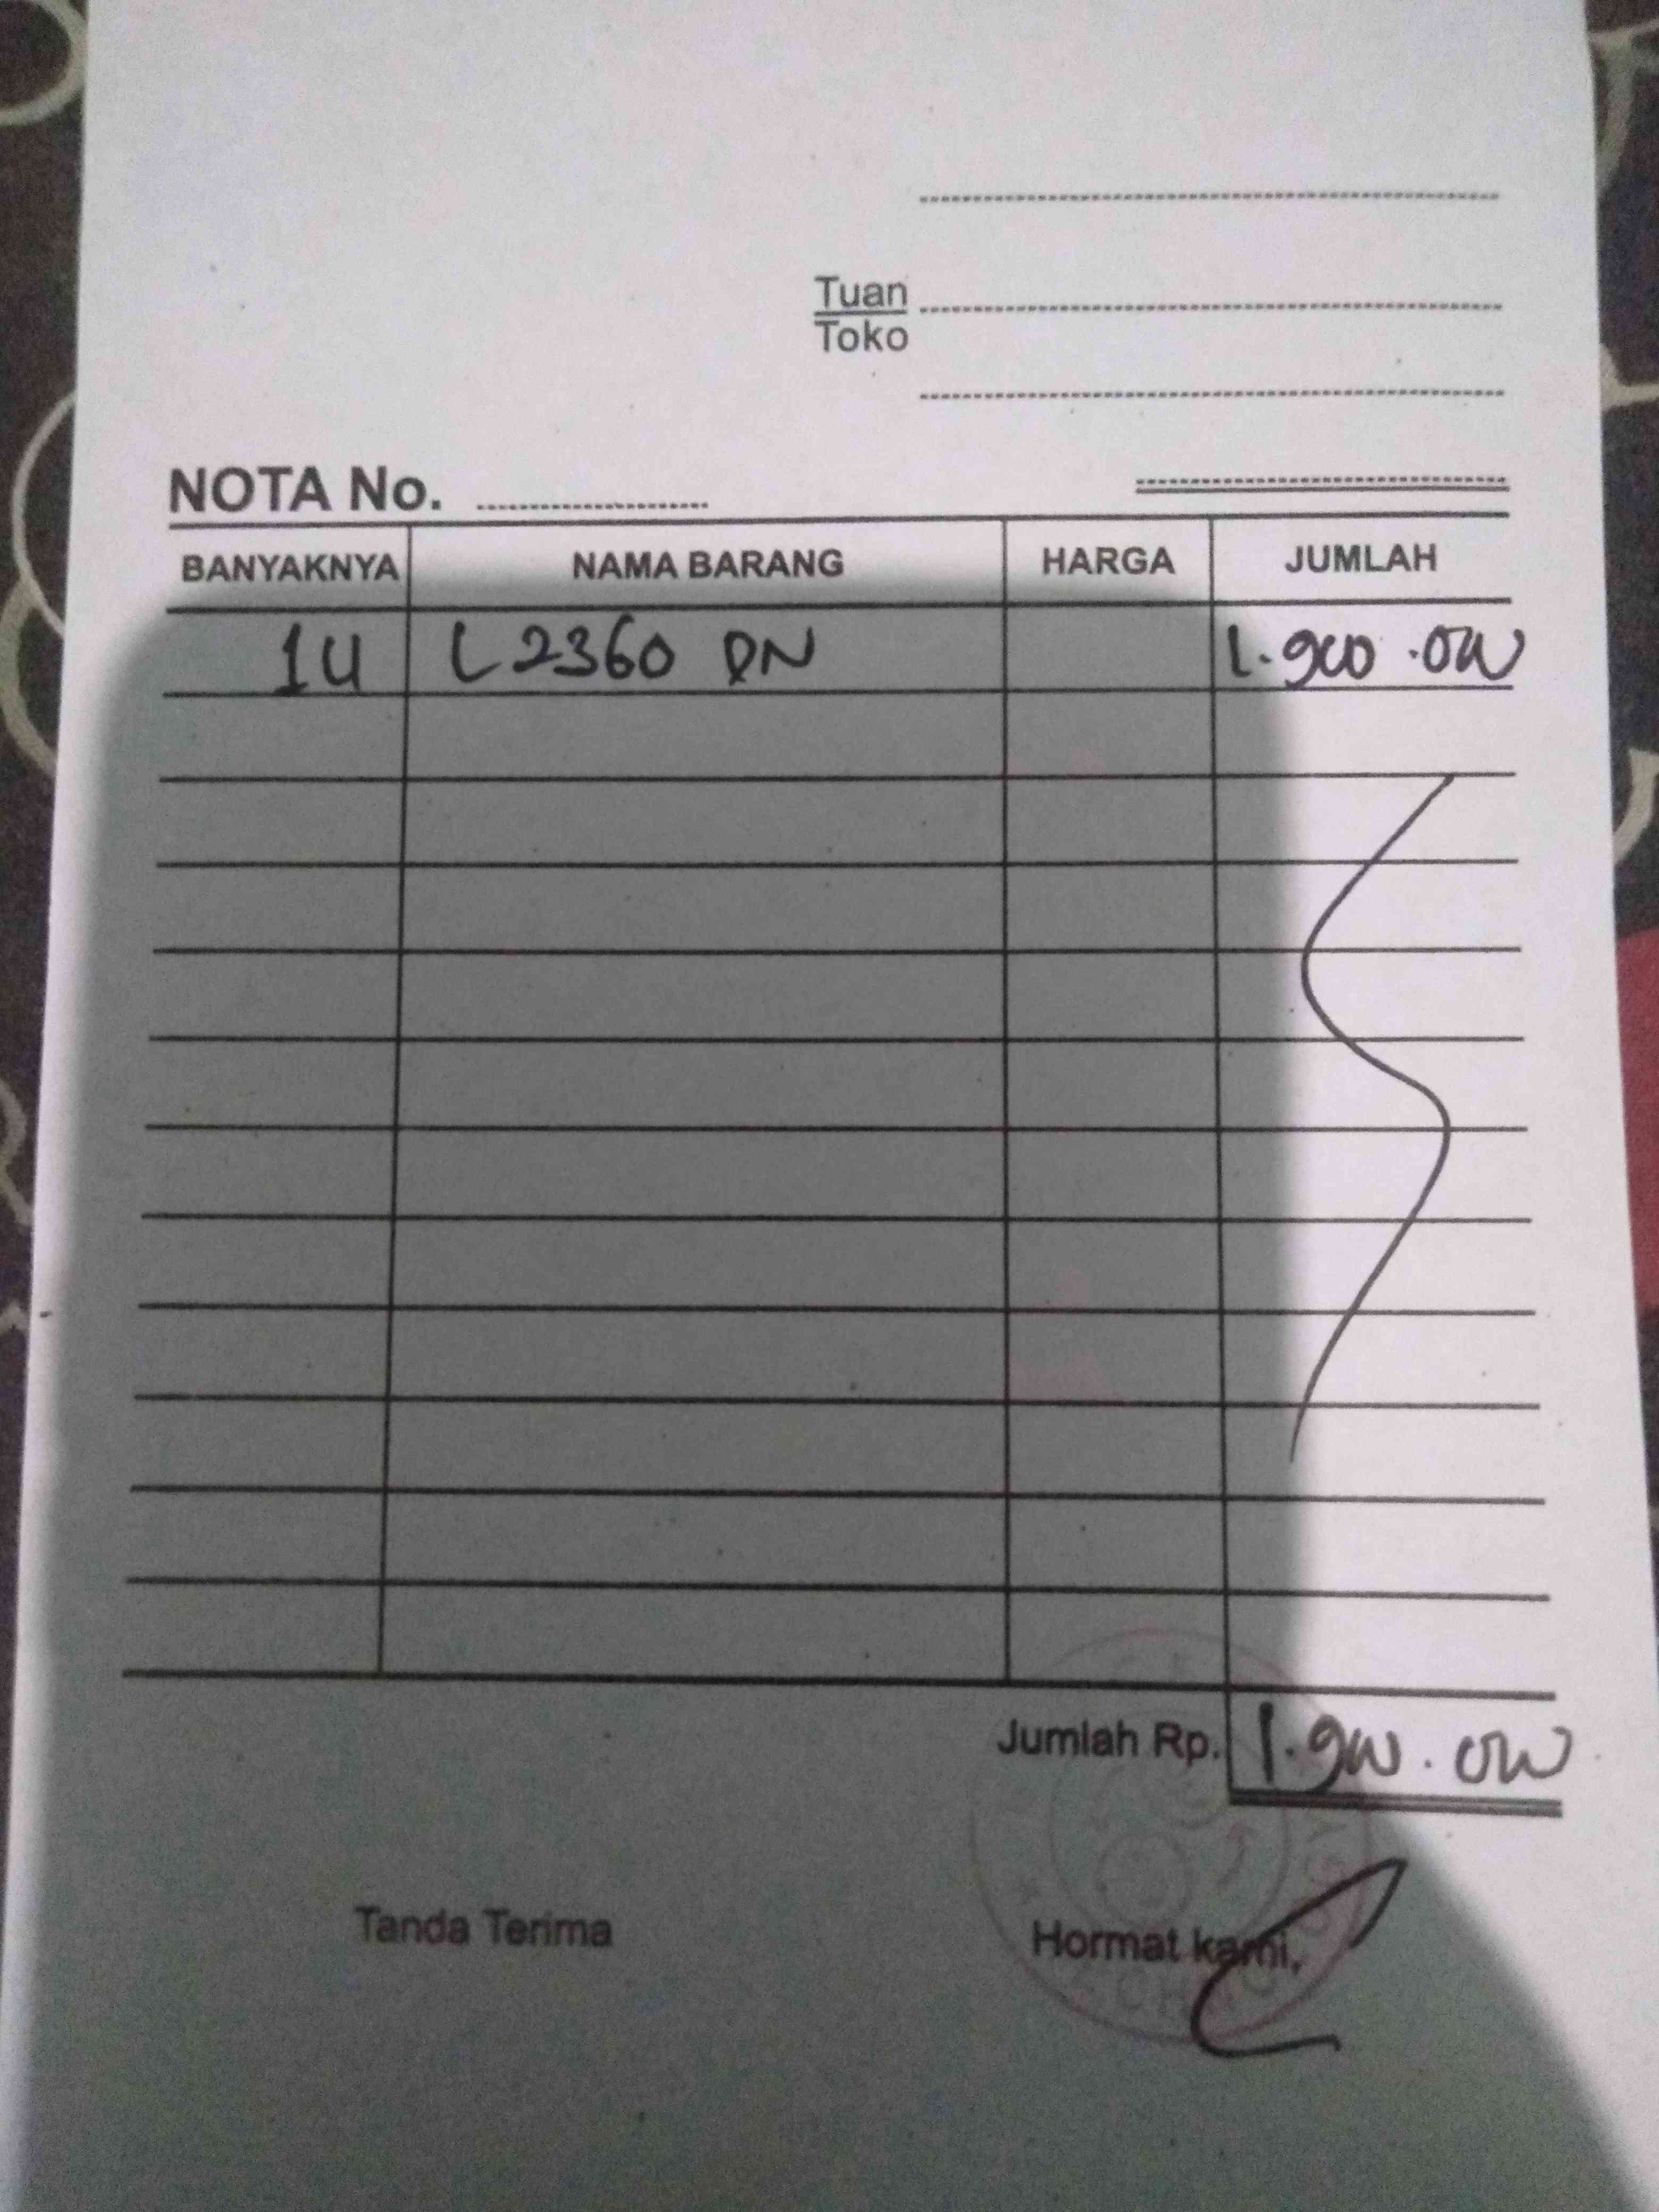 Tuan
Toko
NOTA No.
BANYAKNYA NAMA BARANG HARGA JUMLAH
1U L2360 DN 1.900.000
Jumlah Rp. 1.900.000
Tanda Terima Hormat kami,